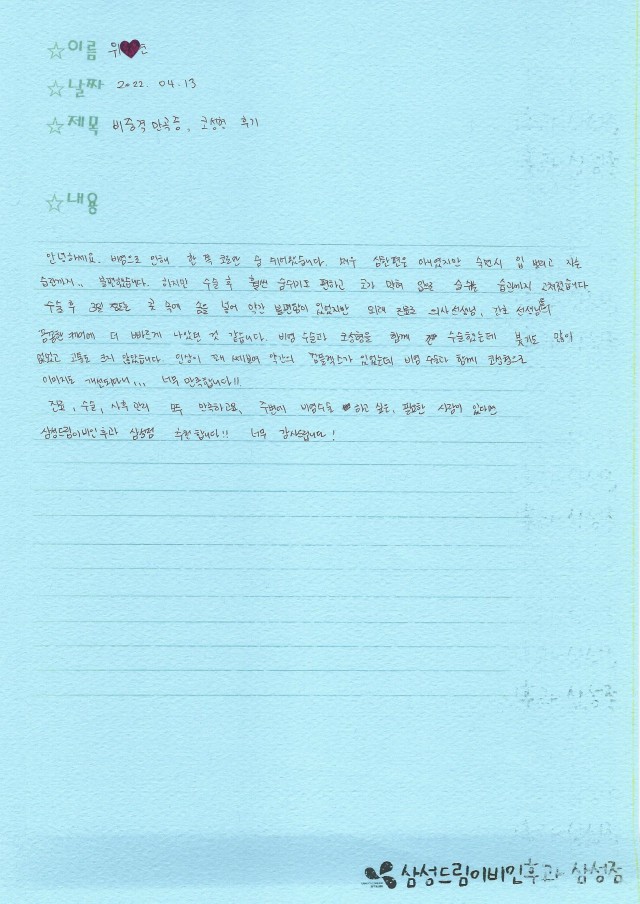 ☆이름 위♥연
☆날짜 2022. 04. 13
☆제목 비중격만곡증, 코성형 후기
☆내용
안녕하세요. 비염으로 인해 한 쪽 코로만 숨 쉬어왔습니다. 매우 심한편은 아니였지만 수면시 입 벌리고 자는
습관까지.. 불편했습니다. 하지만 수술 후 훨씬 숨쉬기도 편하고 코가 막혀 입으로 숨쉬는 습관까지 고쳐졌습니다.
수술 후 3일 정도는 콧 속에 솜을 넣어 약간 불편함이 있었지만 외래 진료로 의사선생님, 간호 선생님들의
꼼꼼한 케어에 더 빠르게 나았던 것 같습니다. 비염 수술과 코성형을 함께 수술했는데 붓기도 많이
없었고 고통도 크지 않았습니다. 인상이 쎄보여 약간의 컴플렉스가 있었는데 비염 수술과 함께 코성형으로
이미지도 개선되어서,,, 너무 만족합니다!!
진료, 수술, 사후 관리 모두 만족하고요, 주변에 비염수술 하고 싶은, 필요한 사람이 있다면
삼성드림이비인후과 삼성점 추천합니다!! 너무 감사드립니다!
삼성드림이비인후과 삼성점